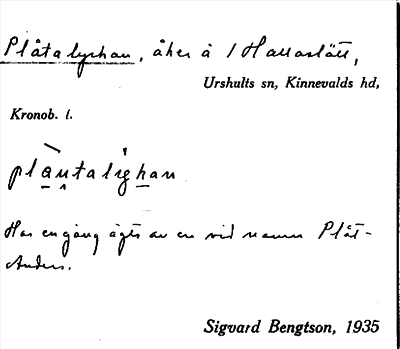 Plåtalyckan, åker å 1 Hallaslätt,
Urshults sn, Kinnevalds hd,
Kronob. l.
plåntalighan
Har en gång ägts av en vid namn Plåt-
Anders.
Sigvard Bengtson, 1935